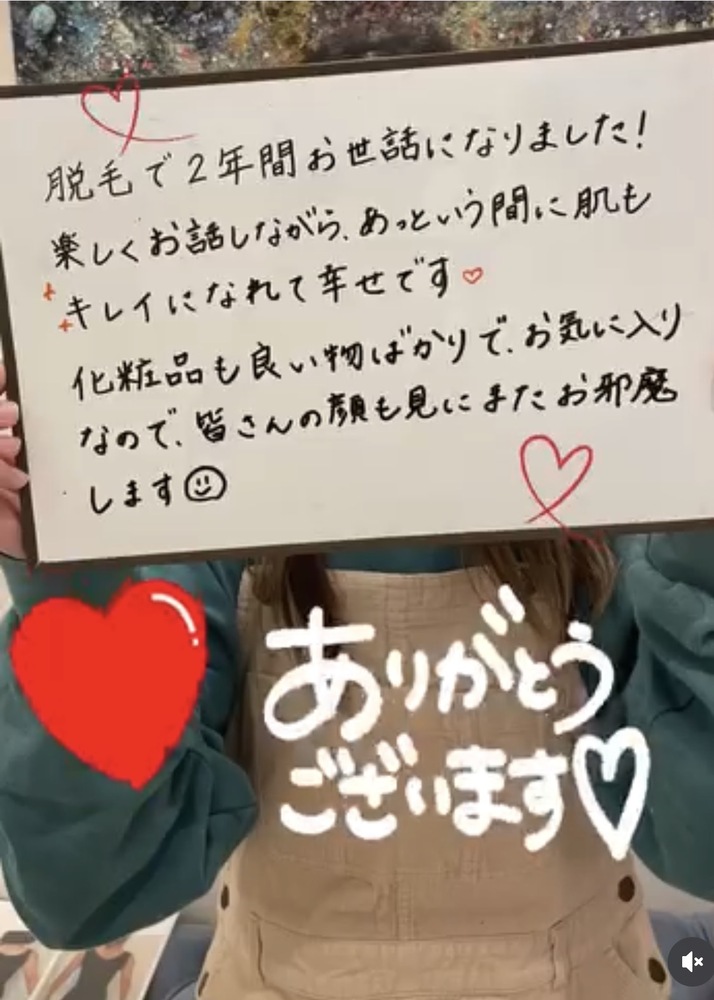 脱毛で2年間お世話になりました!
楽しくお話しながら、あっという間に肌も
キレイになれて幸せです♡
化粧品も良い物ばかりで、お気に入り
なので、皆さんの顔も見にまたお邪魔
します☺
ありがとう
ございます♡